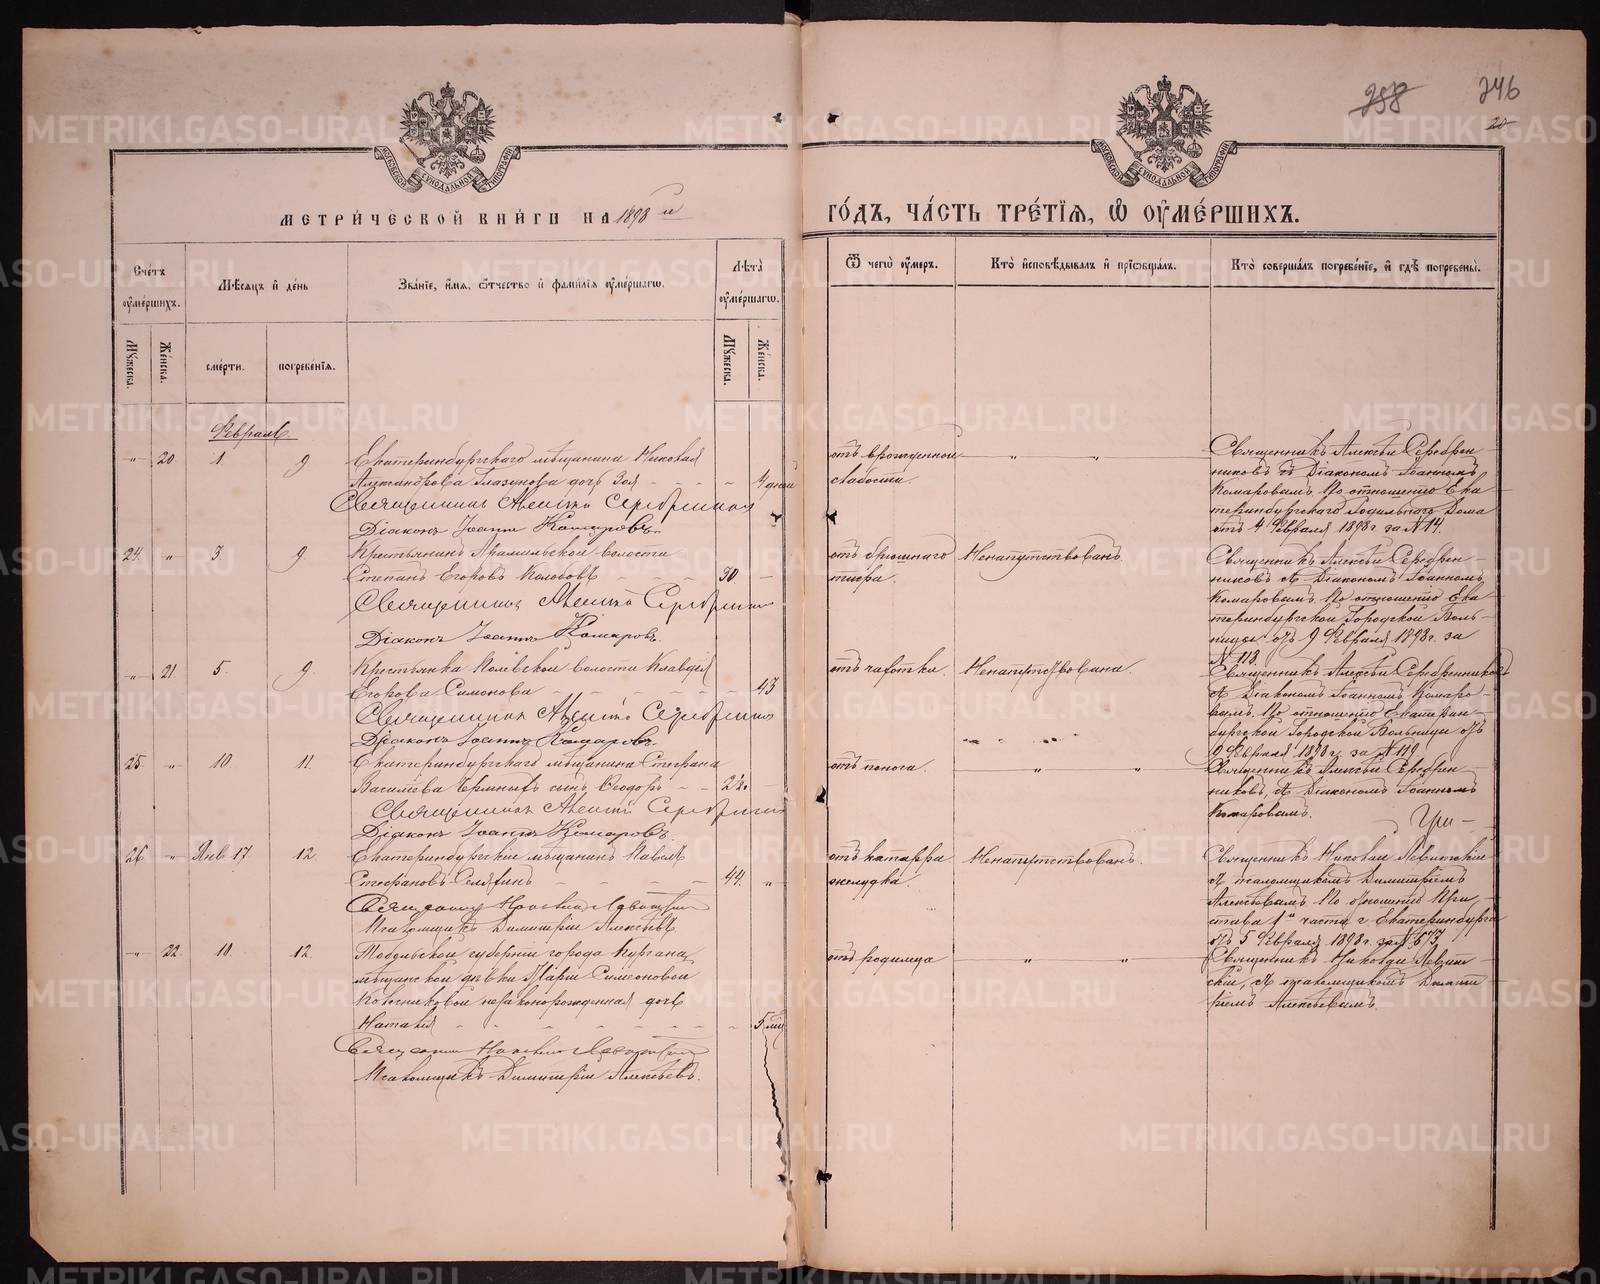 258
246
20
МЕТРИ́ЧЕСКОЙ КНИ́ГИ НА 1898й
ГО́ДЪ, ЧА́СТЬ ТРЕ́ТІѦ, Ѡ҆ ОУ҆МЕ́РШИХЪ.
МОСКОВСКОЙ СѴНОДАЛЬНОЙ ТИПОГРАФІИ
МОСКОВСКОЙ СѴНОДАЛЬНОЙ ТИПОГРАФІИ
Сче́тъ оу҆ме́ршихъ.
Мѣ́сѧцъ и҆ де́нь
Зва́нїе, и҆́мѧ, ѻ҆́тчество и҆ фами́лїѧ оу҆ме́ршагѡ.
Лѣ́та оу҆ме́ршагѡ.
Ѿ чегѡ̀ оу҆́меръ.
Кто̀ и҆сповѣ́дывалъ и҆ прїѡбща́лъ.
Кто̀ соверша́лъ погребе́нїе, и҆ гдѣ̀ погребены̀.
Мꙋ́жеска.
Же́нска.
сме́рти.
погребе́нїѧ.
Мꙋ́жеска.
Же́нска.
Февраль
" 20. 1 9
Екатеринбургскаго мѣщанина Николая
Александрова Глазунова дочь Зоя - - - - 4 дней
Священникъ Алексѣй Серебренниковъ
Діаконъ Іоаннъ Комаровъ.
отъ врожденной
слабости.
" "
Священникъ Алексѣй Серебрен-
никовъ съ Діакономъ Іоанномъ
Комаровымъ. По отношенію Ека-
теринбургскаго Родильнаго Дома
отъ 4 Февраля 1898 г за № 14.
24. " 3. 9
Крестьянинъ Арамильской волости
Степанъ Егоровъ Колобовъ - - - - 30. -
Священникъ Алексѣй Серебренниковъ
Діаконъ Іоаннъ Комаровъ.
отъ брюшнаго
тифа.
Ненапутствованъ.
Священникъ Алексѣй Серебрен-
никовъ съ Діакономъ Іоанномъ
Комаровымъ. По отношенію Ека-
теринбургской Городской Боль-
ницы отъ 9 Февраля 1898 г. за
№ 118.
" 21. 5. 9.
Крестьянка Полевской волости Клавдія
Егорова Симонова - - - - - - 43
Священникъ Алексѣй Серебренниковъ
Діаконъ Іоаннъ Комаровъ.
отъ чахотки.
Ненапутствована.
Священникъ Алексѣй Серебренниковъ
съ Діакономъ Іоанномъ Комаро-
вымъ. По отношенію Екатерин-
бургской Городской Больницы отъ
9 Февраля 1898 г. за № 119
25. " 10. 11.
Екатеринбургскаго мѣщанина Стефана
Васильева Черныхъ сынъ Ѳеодоръ - - 2½.
Священникъ Алексѣй Серебренниковъ
Діаконъ Іоаннъ Комаровъ.
отъ поноса.
" "
Священникъ Алексѣй Серебрен-
никовъ, съ Діакономъ Іоанномъ
Комаровымъ.
26. " Янв. 17 12.
Екатеринбургскій мѣщанинъ Павелъ
Стефановъ - - - - 44. "
Священникъ Николай Левитскій
Псаломщикъ Димитрій Алексѣевъ.
отъ катарра
желудка.
Ненапутствованъ.
Священникъ Николай Левитскій
съ псаломщикомъ Димитріемъ
Алексѣевымъ. По отношенію При-
става 1й части г Екатеринбурга
отъ 5 Февраля 1898 г. за № 673.
" 22. 10. 12.
Тобольской губерніи города Кургана,
мѣщанской дѣвки Маріи Симеоновой
Колесниковой незаконорожденная дочь
Наталія - - - - - - - 5 мѣс
Священникъ Николай Левитскій
Псаломщикъ Димитрій Алексѣевъ.
отъ родимца
" "
Священникъ Николай Левит-
скій, съ псаломщикомъ Димит-
ріемъ Алексѣевымъ.
METRIKI.GASO-URAL.RU